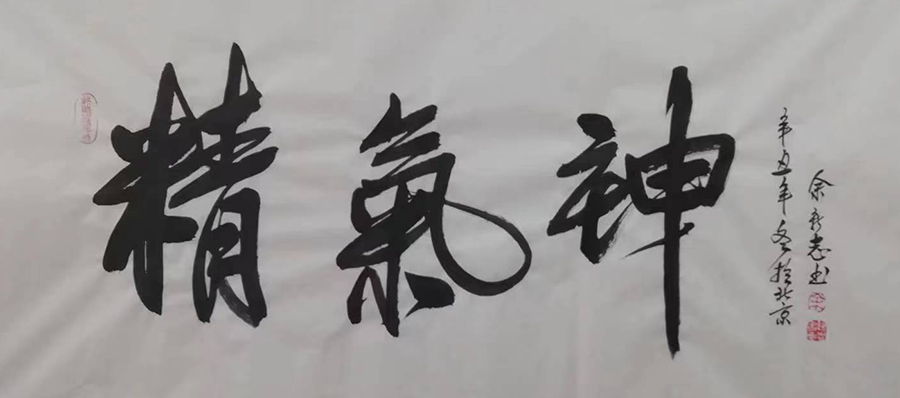 精氣神
辛丑年冬於北京
余志书